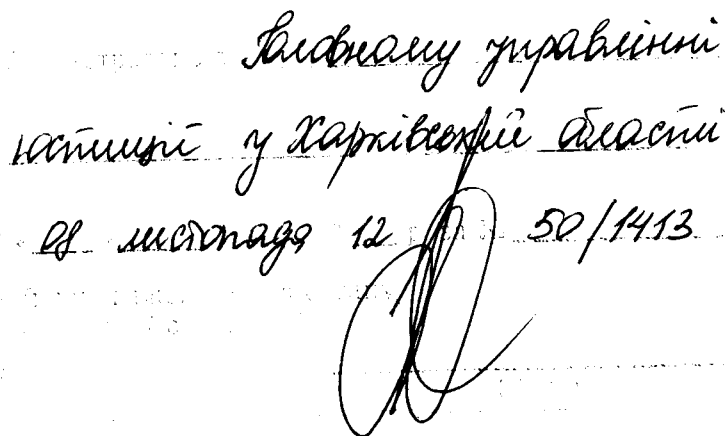 Головному управлінні
юстиції у Харківській області
08 листопада 12 50/1413